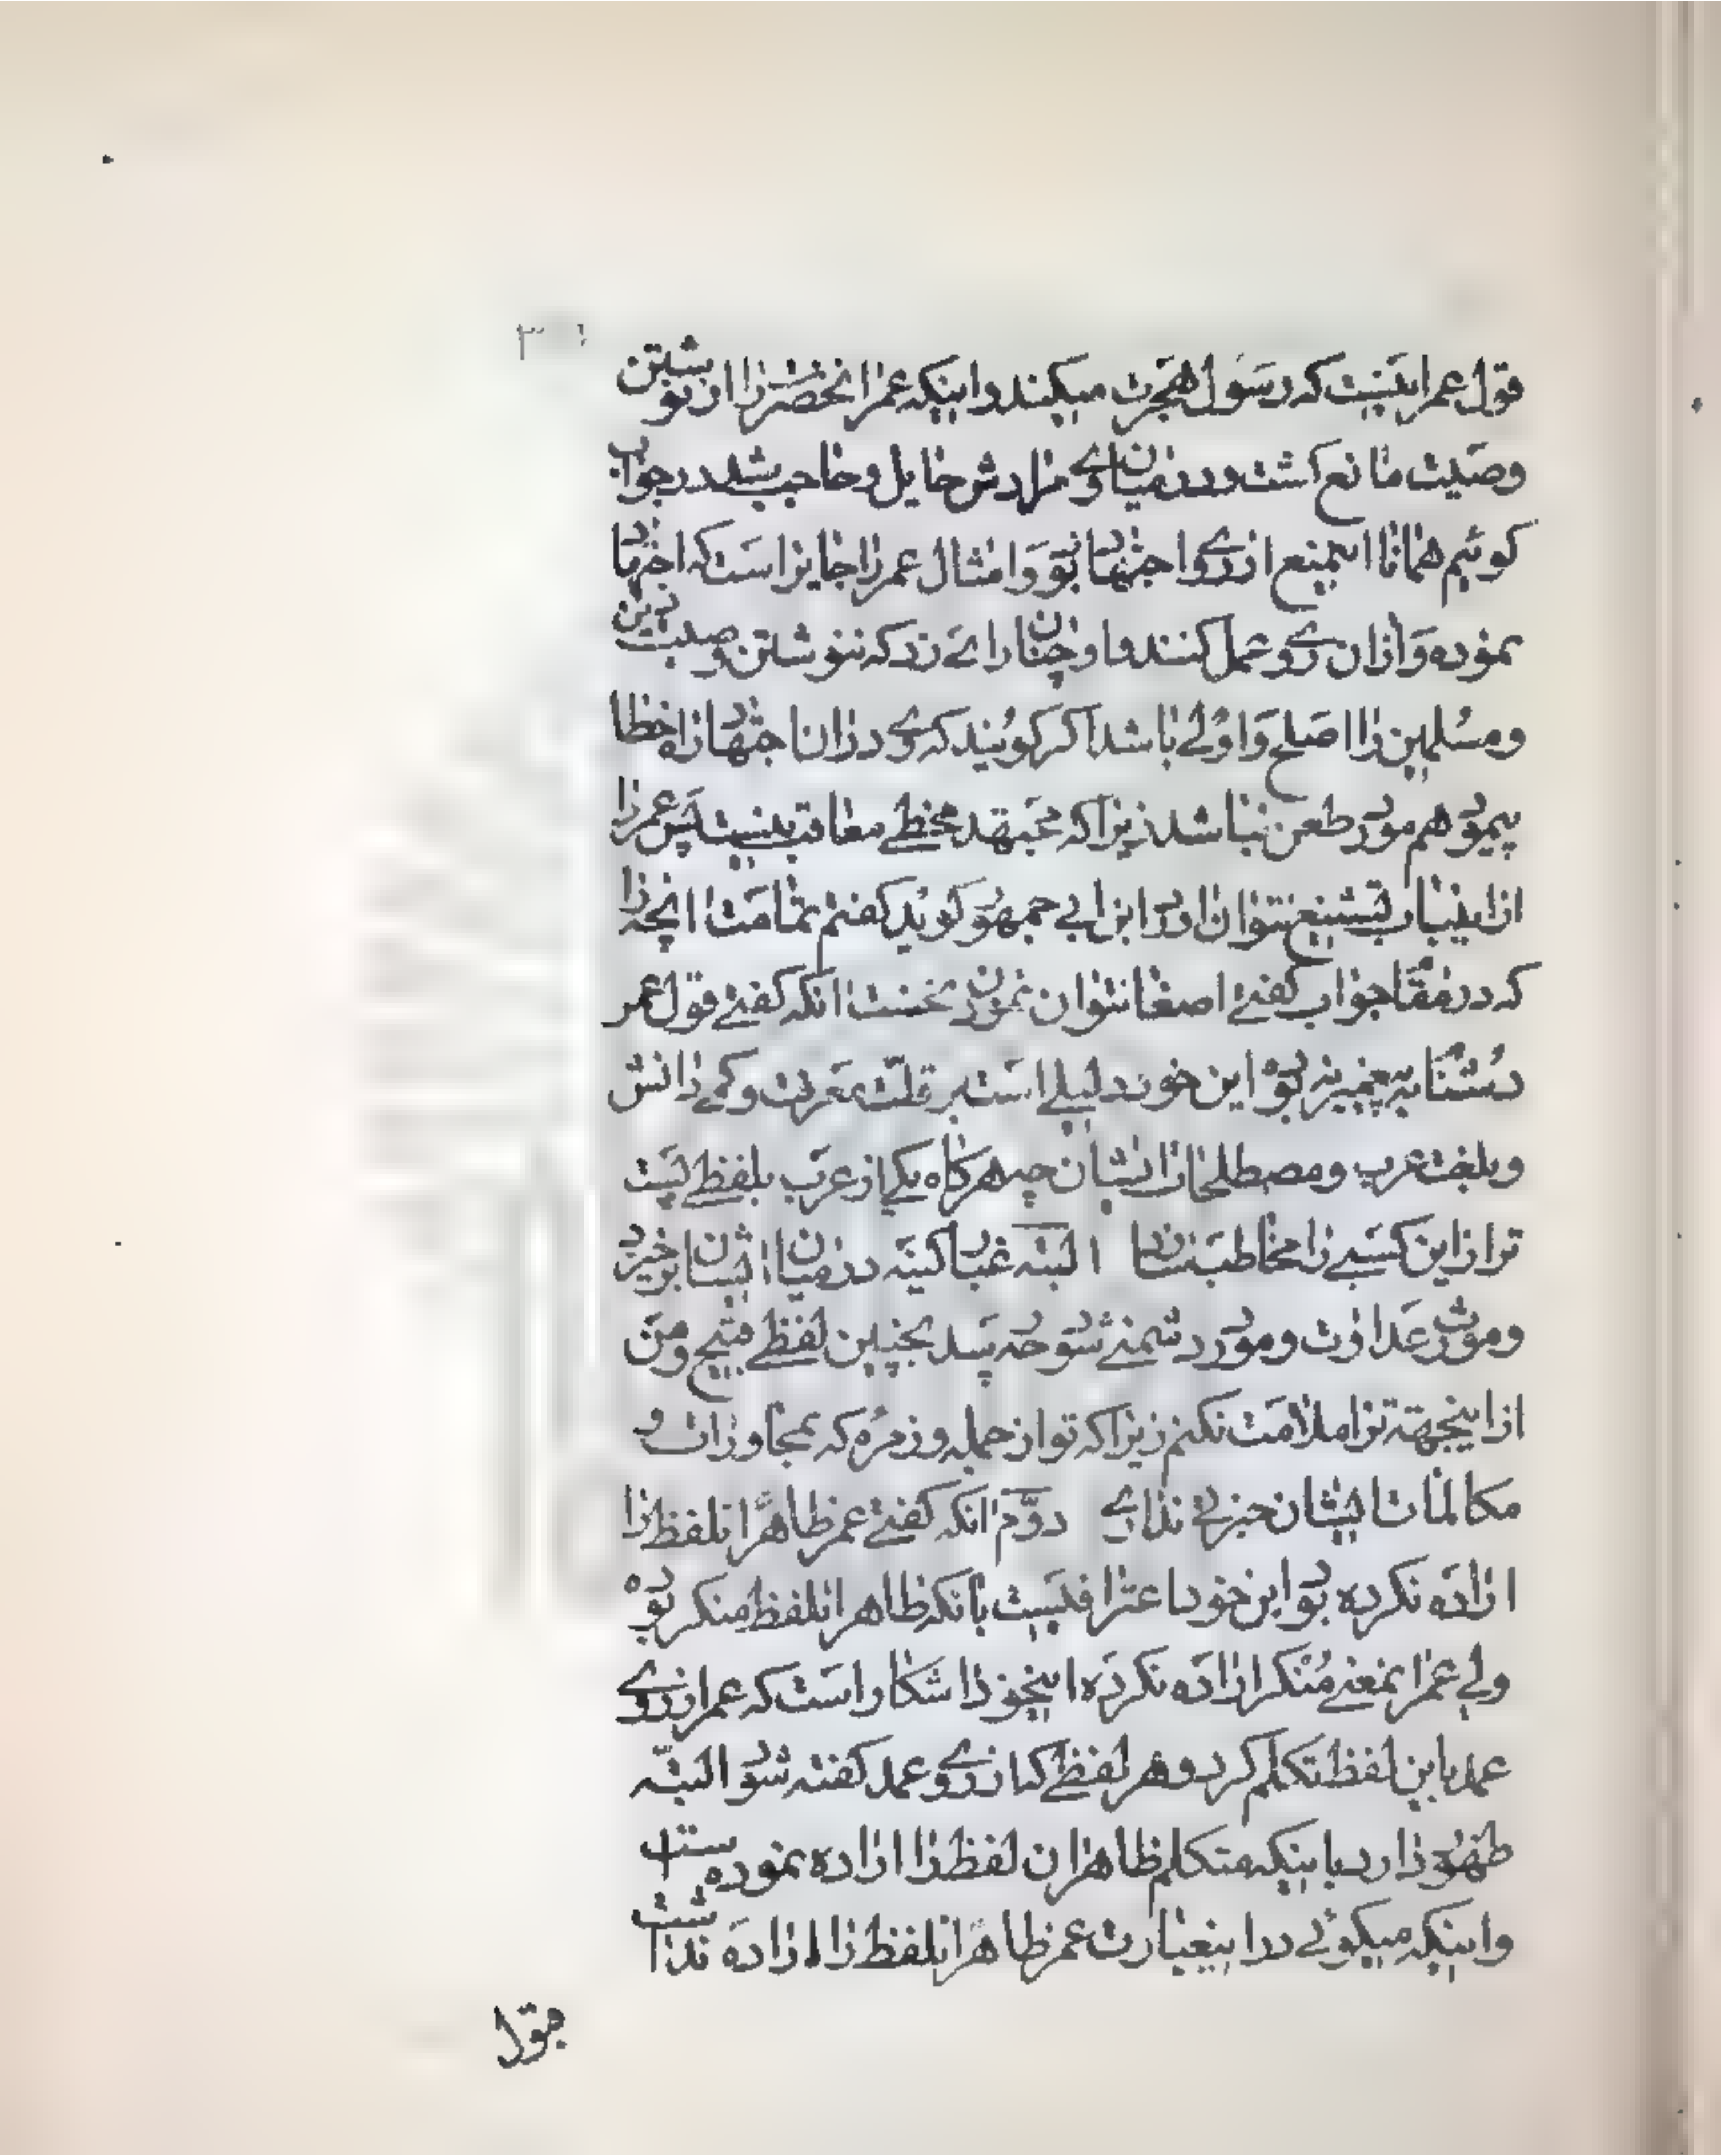 قول عمر اینست که رسول هجرت میکند و اینکه عمر انحضرترا از نوشتن
وصیت مانع کشت و در میان وی و مرادش حایل و حاجب شد در جواب
کوئیم همانا اینمنع از روی اجتهاد بود و امثال عمر را جایز است که اجتهاد
نموده و از ان روی عمل کنند و او چنان رای زد که ننوشتن وصیت دین
ومسلمین را اصلح و اولی باشد اکر کویند که وی در ان اجتهاد راه خطا
پیمود هم مورد طعن نباشد زیرا که مجتهد مخطی معاقب نیست پس عمر را
از اینباب تشنیع نتوان اورد ابن ابی جمهور کوید کفتم تمامت انچه را
که در مقام جواب کفتی اصغا نتوان نمود نخست انکه کفتی قول عمر
دشنام به پیغمبر نبوده این خود دلیلی است بر قلت معرفت و کمی دانش
وبلغت عرب ومصطلحات ایشان چه هرکاه یکی از عرب بلفظی پست
تر از این کسی را مخاطب سازد البته غبار کینه در میان ایشان برخیزد
ومورث عداوت ومورد دشمنی شود چه رسد بچنین لفظی قبیح ومن
از اینجهة ترا ملامت نکنم زیرا که تو از جمله و زمره که بمحاورات و
مکالمات ایشان خبرتی نداری دوم انکه کفتی عمر ظاهر انلفظ را
اراده نکرده بود این خود اعترافیست بانکه ظاهر انلفظ منکر بوده
ولی عمر انمعنی منکر اراده نکرده اینخود اشکار است که عمر از روی
عمد باین لفظ تکلم کرد و هر لفظی که از روی عمد کفته شود البته
ظهور دارد باینکه متکلم ظاهر ان لفظ را اراده نموده است
واینکه میکوئی در اینعبارت عمر ظاهر انلفظ را اراده نداشت